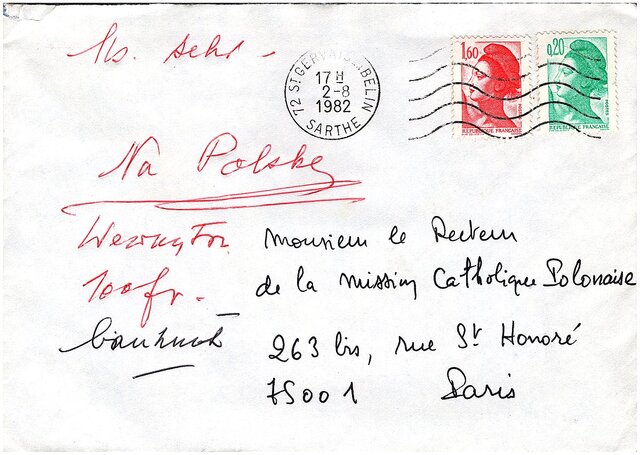 Ks.
72 ST GERVAIS-BELIN
17 H
2-8
1982
SARTHE
1,60
REPUBLIQUE FRANCAISE
0,20
REPUBLIQUE FRANCAISE
Na Polskę
Wewnątrz
100 fr.
Monsieur le Recteur
de la Mission Catholique Polonaise
263 bis, rue St Honoré
75001 Paris